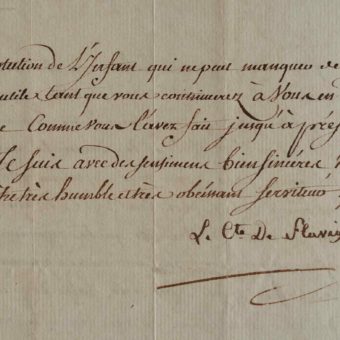 de L'Infant qui ne peut manquer de
utile, tant que vous continuerez à Vous en
Comme vous l'avez fait jusqu'à prés
Je suis avec des sentimens bien sincéres
très humble et très obéissant serviteur
Le Cte De Flavig